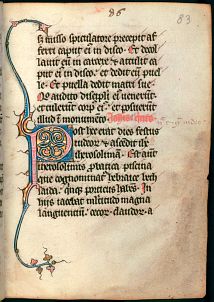 86
83
sa misso spiculatore precepit af
ferri caput eius in disco. Et decol
lavit eum in carcere & attulit ca
put eius in disco. et dedit eum puel
le. Et puella dedit matri sue
et tulerunt corpus eius. et posuerunt
illud in monumento.
Post hec erat dies festus
iudeor & ascendit
iherosolimam. Est autem
iherosolimis probatica piscina
que cognominatur hebraice beth
saida. quinque porticus habens. In
hiis iacebat multitudo magna
languentium. cecor. claudor. a